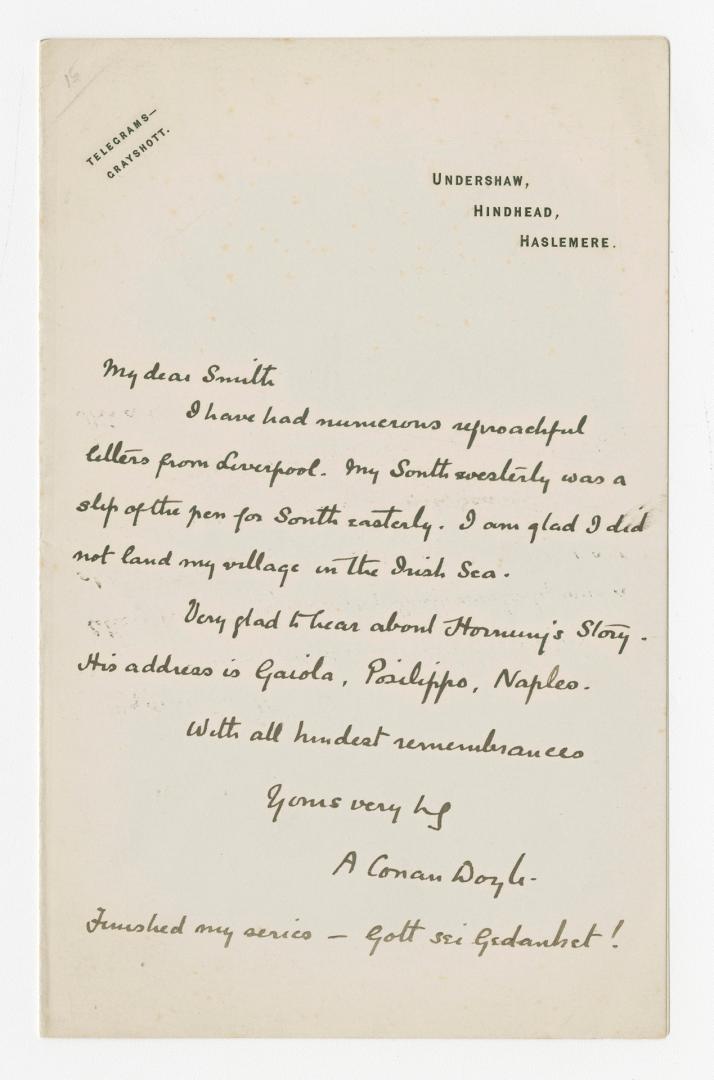 15
TELEGRAMS—
GRAYSHOTT.
UNDERSHAW,
HINDHEAD,
HASLEMERE.
My dear Smith
I have had numerous reproachful
letters from Liverpool. My South westerly was a
slip of the pen for South easterly. I am glad I did
not land my village in the Irish Sea.
Very glad to hear about Hornung's Story.
His address is Gaiola, Posilippo, Naples.
With all kindest remembrances
Yours very
A Conan Doyle.
Finished my series — Gott sei Gedanket!